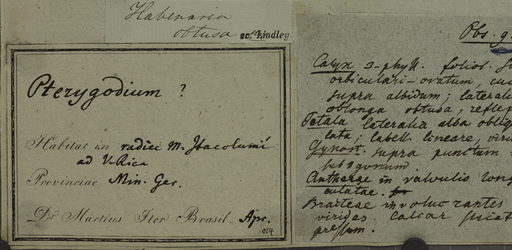 Habenaria
obtusa sc. Lindley.
Pterygodium ?
Habitat in radici M. Itacolumi
ad V. Rica
Provinciae Min. Ger.
Dr Martius Iter Brasil. Apr.
Obs. g.
Calyx 3-phyll. folios.
orbiculari-ovatum,
supra albidum; laterali
oblonga obtusa, reflex
Petala lateralia alba obliq
lata; labell. lineare, viri
Gynost. supra punctum
Antherae in valvulis long
Bracteae involucrantes
virides. Calcar
pressum.